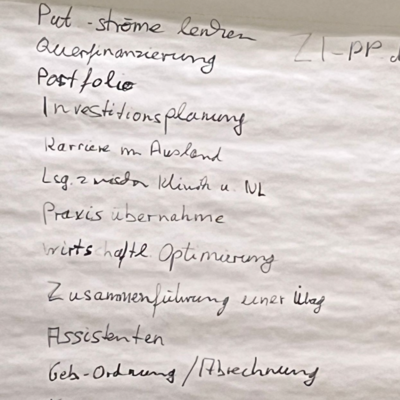 Pat-ströme lenken
Querfinanzierung
ZI-PP.
Portfolio
Investitionsplanung
Karriere im Ausland
Lsg. zwischen Klinik u. NL
Praxisübernahme
wirtschaftl. Optimierung
Zusammenführung einer Übag
Assistenten
Geb-Ordnung / Abrechnung